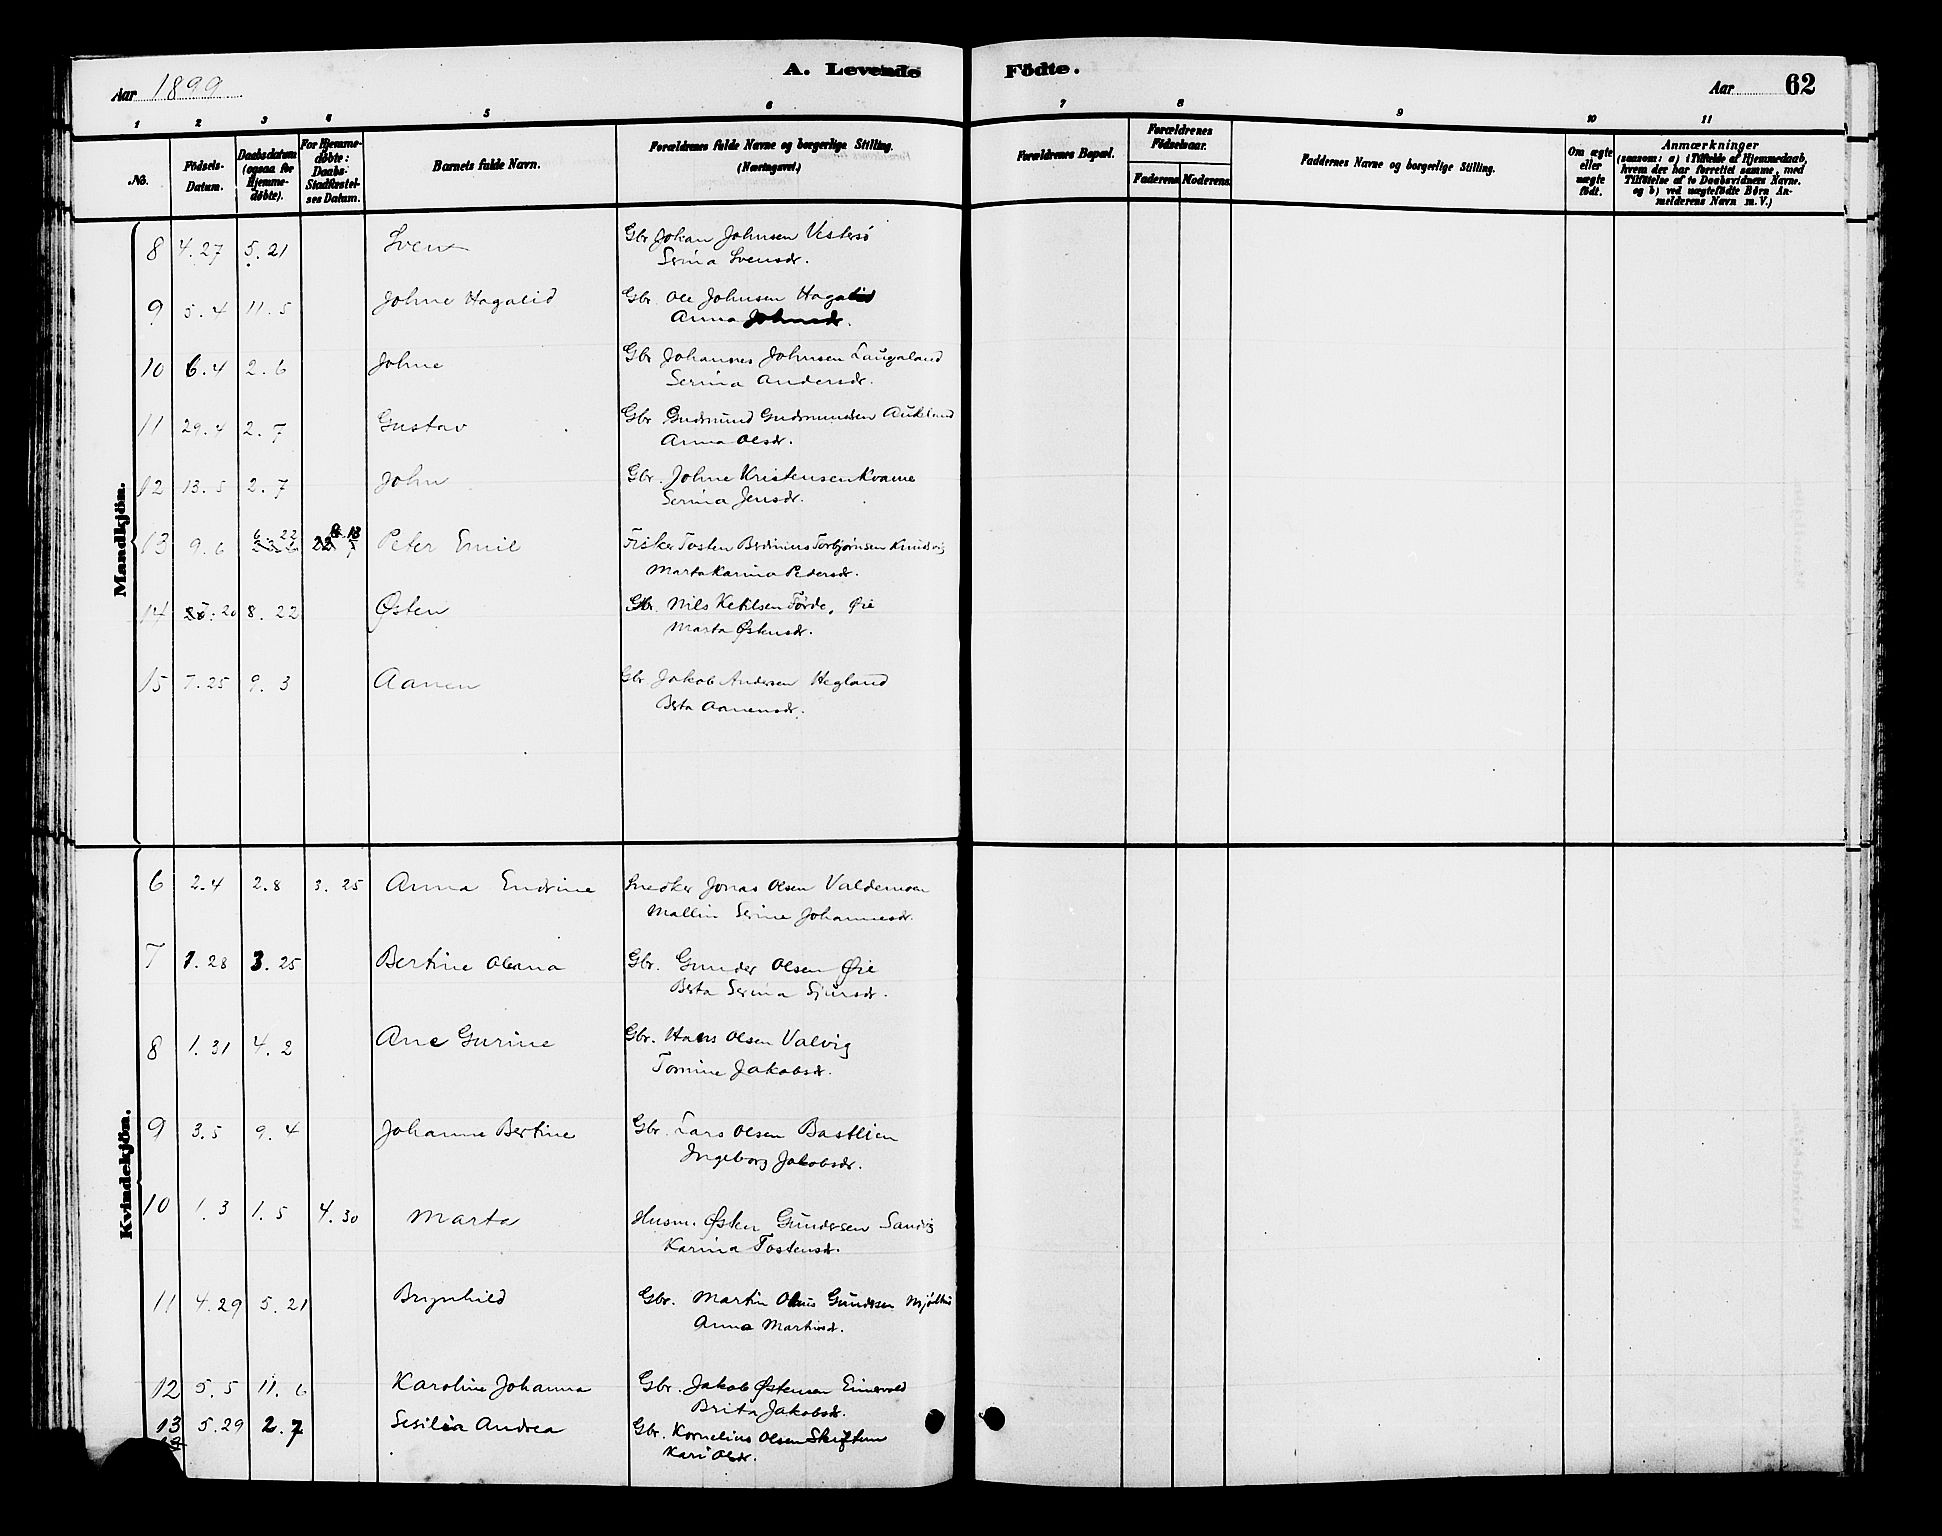 A. Levende Födte.
Aar 1899
Aar 62
1 2 3 4 5 6 7 8 9 10 11
No.
Födsels-Datum.
Daabsdatum (ogsaa for Hjemme-döbte).
For Hjemme-döbte: Daabs-Stadfæstel-ses Datum.
Barnets fulde Navn.
Forældrenes fulde Navne og borgerlige Stilling. (Næringsvei.)
Forældrenes Bopæl.
Forældrenes Födselsaar.
Faderens Moderens
Faddernes Navne og borgerlige Stilling.
Om ægte eller uægte födt.
Anmærkninger
(saasom: a) i Tilfælde af Hjemmedaab,
hvem der har forrettet samme, med
Tilföielse af to Daabsvidners Navne,
og b) ved uægtefödte Börn An-
melderens Navn m. V.)
Mandkjön.
8 4.27 5.21 Sven Gbr Johan Johnsen Vestersö
Serina Svensdr.
9 5.4 11.5 Johne Hagalid Gbr. Ole Johnsen Hagalid
Anna Johnsdr.
10 6.4 2.6 Johne Gbr Johannes Johnsen Laugaland
Serina Andersdr.
11 29.4 2.7 Gustav Gbr Gudmund Gudmundsen Aukland
Anna Olsdr.
12 13.5 2.7 John Gbr. Johne Kristensen Kvame
Serina Jensdr.
13 9.6 6.22 Peter Emil Fisker Tosten Berdinius Torbjørnsen Knudsvig
Marta Karina Pedersdr.
14 20 8.22 Østen Gbr. Nils Ketilsen Førde, Øie
Marta Østensdr.
15 7.25 9.3 Aanen Gbr Jakob Andersen Hegland
Berta Aanensdr.
Kvindekjön.
6 2.4 2.8 3.25 Anna Endrine Snedker Jonas Olsen Valdemoen
Mallin Serine Johannesdr.
7 1.28 3.25 Bertine Oleana Gbr. Gunder Olsen Øie
Berta Serina Sjursdr.
8 1.31 4.2 Ane Gurine Gbr. Hans Olsen Valvig
Tomine Jakobsdr.
9 3.5 9.4 Johanne Bertine Gbr. Lars Olsen Bastlien
Ingeborg Jakobsdr.
10 1.3 1.5 4.30 Marta Husm. Østen Gundersen Sandvig
Karina Tostensdr.
11 4.29 5.21 Brynhild Gbr. Martin Olaus Gundersen Mjølhus
Anna Martinsdr.
12 5.5 11.6 Karoline Johanna Gbr. Jakob Østensen Eimervold
Brita Jakobsdr.
13 5.29 2.7 Sesilia Andrea Gbr. Kornelius Olsen Skiftun
Kari Olsdr.